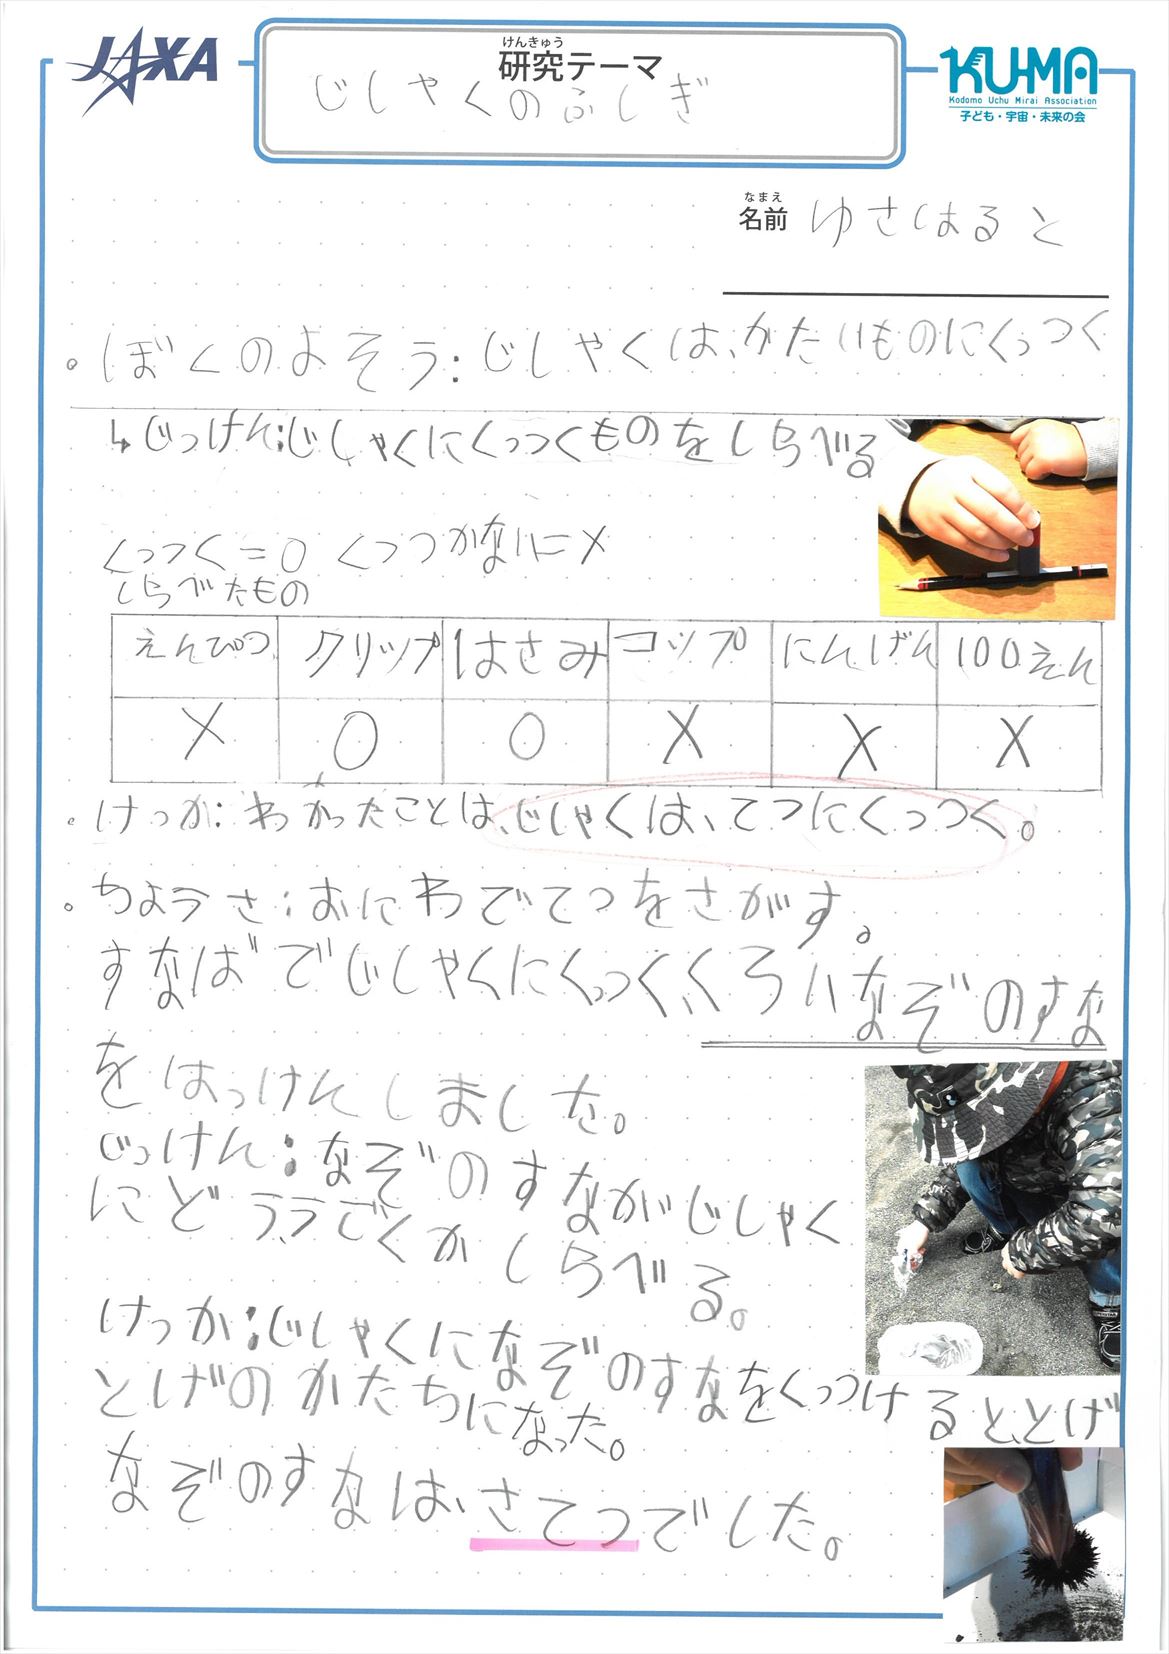 JAXA
けんきゅう
研究テーマ
じしゃくのふしぎ
KU-MA
Kodomo Uchu Mirai Association
子ども・宇宙・未来の会
なまえ
名前 ゆさはると
。ぼくのよそう:じしゃくは、かたいものにくっつく
↳じっけん:じしゃくにくっつくものをしらべる
くっつく=O くっつかない=×
しらべたもの
えんぴつ クリップ はさみ コップ にんげん 100えん
× O O × × ×
。けっか:わかったことは、じしゃくは、てつにくっつく。
。ちょうさ:おにわでてつをさがす。
すなばでじしゃくにくっつく、くろいなぞのすな
をはっけんしました。
じっけん:なぞのすながじしゃく
にどううごくかしらべる。
けっか:じしゃくになぞのすなをくっつけると、とげ
とげのかたちになった。
なぞのすなは、さてつでした。